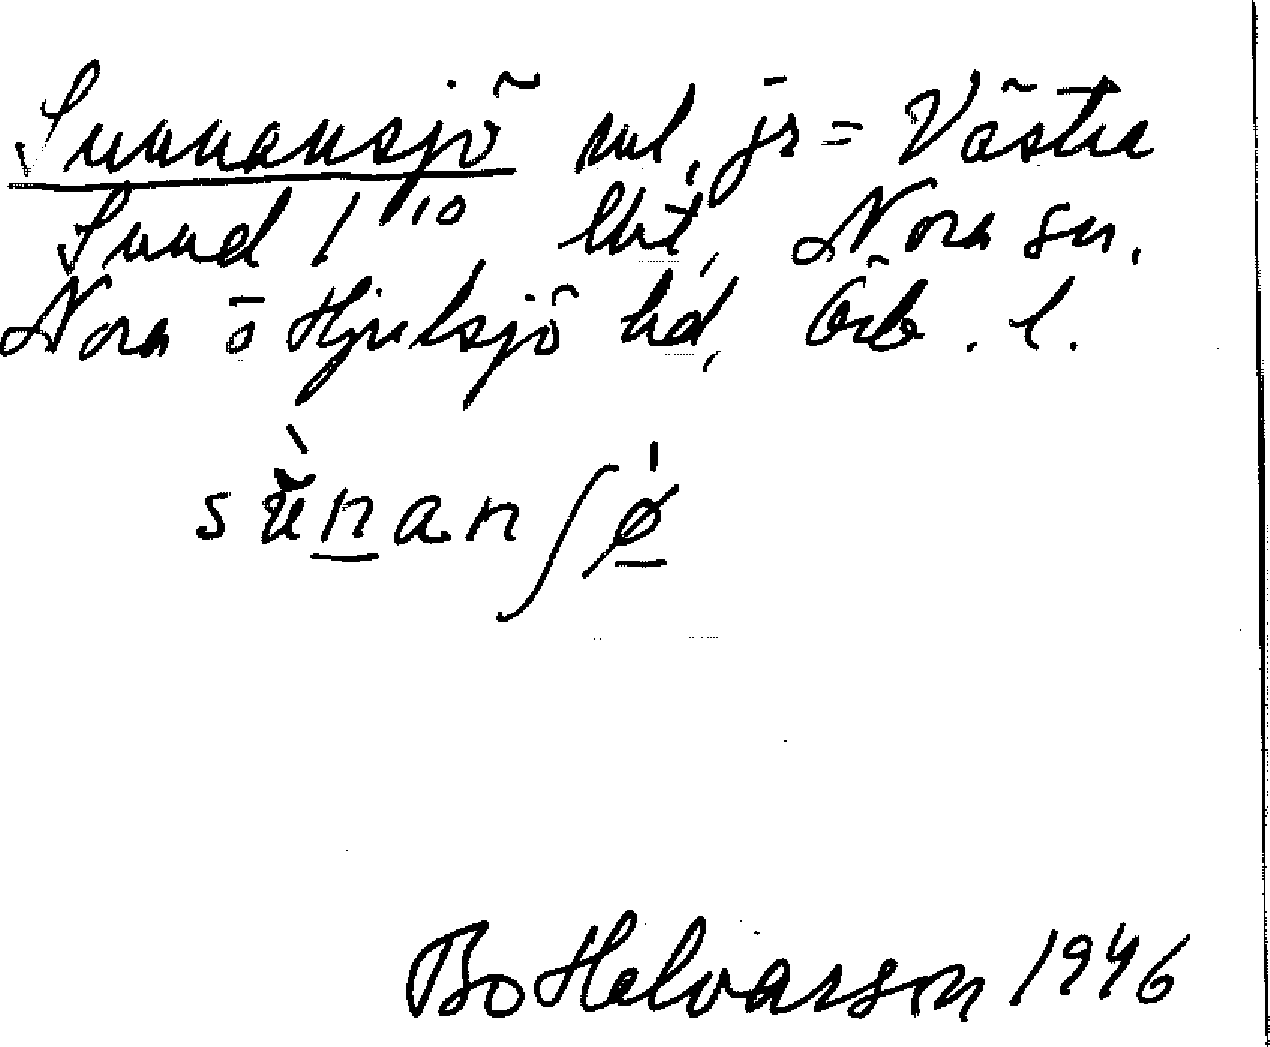 Sunnansjö rul, js = Västra
Sund 1¹⁰ lht, Nora sn.
Nora o Hjulsjö hd, Örb. l.
sùnanʃø
Bo Helvarson 1946